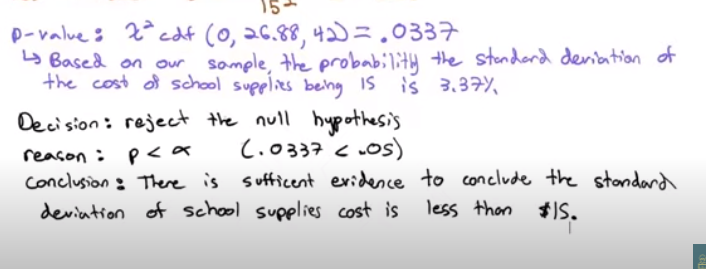 15²
p-value: χ² cdf (0, 26.88, 42) = .0337
↳ Based on our sample, the probability the standard deviation of
the cost of school supplies being 15 is 3.37%.
Decision: reject the null hypothesis
reason: p < α (.0337 < .05)
Conclusion: There is sufficent evidence to conclude the standard
deviation of school supplies cost is less than $15.